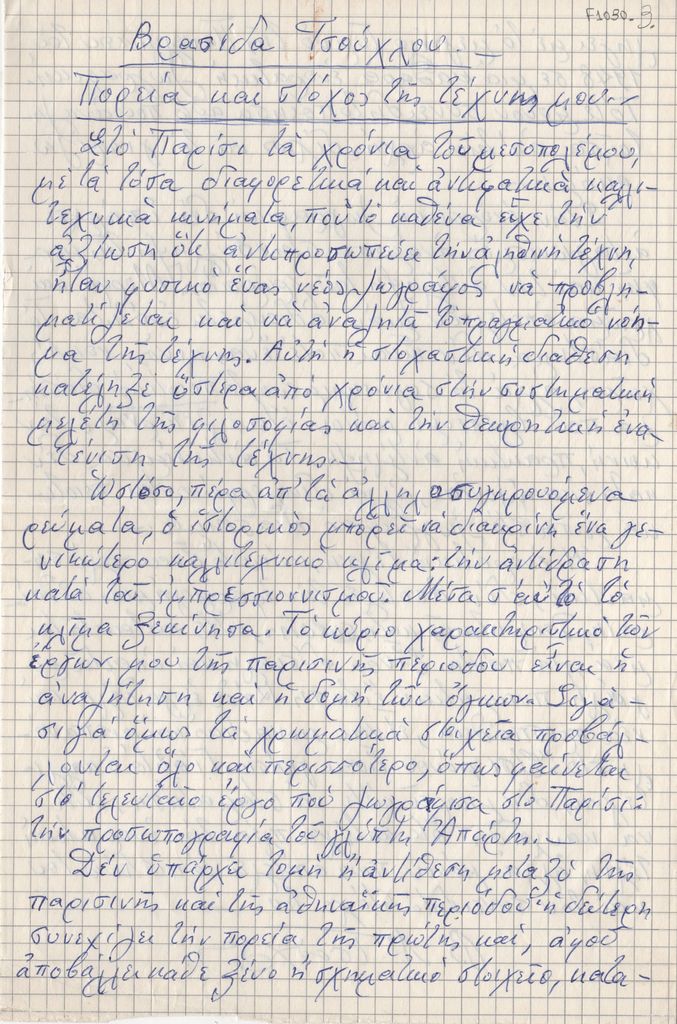 F1030-9.
Βρασίδα Τσούχλου.—
Πορεία καὶ στόχος τῆς τέχνης μου.-
Στὸ Παρίσι τὰ χρόνια τοῦ μεσοπολέμου,
μὲ τὰ τόσα διαφορετικὰ καὶ ἀντιφατικὰ καλλι-
τεχνικὰ κινήματα, ποὺ τὸ καθένα εἶχε τὴν
ἀξίωση ὅτι ἀντιπροσωπεύει τὴν ἀληθινὴ τέχνη,
ἦταν φυσικὸ ἕνας νέος ζωγράφος νὰ προβλη-
ματίζεται καὶ νὰ ἀναζητᾶ τὸ πραγματικὸ νόη-
μα τῆς τέχνης. Αὐτὴ ἡ στοχαστικὴ διάθεση
κατέληξε ὕστερα ἀπὸ χρόνια στὴν συστηματικὴ
μελέτη τῆς φιλοσοφίας καὶ τὴν θεωρητικὴ ἐνα-
τένιση τῆς τέχνης.—
Ὡστόσο, πέρα ἀπ' τὰ ἀλληλοσυγκρουόμενα
ρεύματα, ὁ ἱστορικὸς μπορεῖ νὰ διακρίνη ἕνα γε-
νικώτερο καλλιτεχνικὸ κλῖμα: τὴν ἀντίδραση
κατὰ τοῦ ἰμπρεσσιονισμοῦ. Μέσα σ' αὐτὸ τὸ
κλῖμα ξεκίνησα. Τὸ κύριο χαρακτηριστικὸ τῶν
ἔργων μου τῆς παρισινῆς περιόδου εἶναι ἡ
ἀναζήτηση καὶ ἡ δομὴ τῶν ὄγκων. Σιγὰ-
σιγὰ ὅμως τὰ χρωματικὰ στοιχεῖα προβάλ-
λονται ὅλο καὶ περισσότερο, ὅπως φαίνεται
στὸ τελευταῖο ἔργο ποὺ ζωγράφισα στὸ Παρίσι:
τὴν προσωπογραφία τοῦ γλύπτη Ἀπάρτη.—
Δὲν ὑπάρχει τομὴ ἢ ἀντίθεση μεταξὺ τῆς
παρισινῆς καὶ τῆς ἀθηναϊκῆς περιόδου· ἡ δεύτερη
συνεχίζει τὴν πορεία τῆς πρώτης καί, ἀφοῦ
ἀποβάλλει κάθε ξένο ἢ σχηματικὸ στοιχεῖο, κατα-